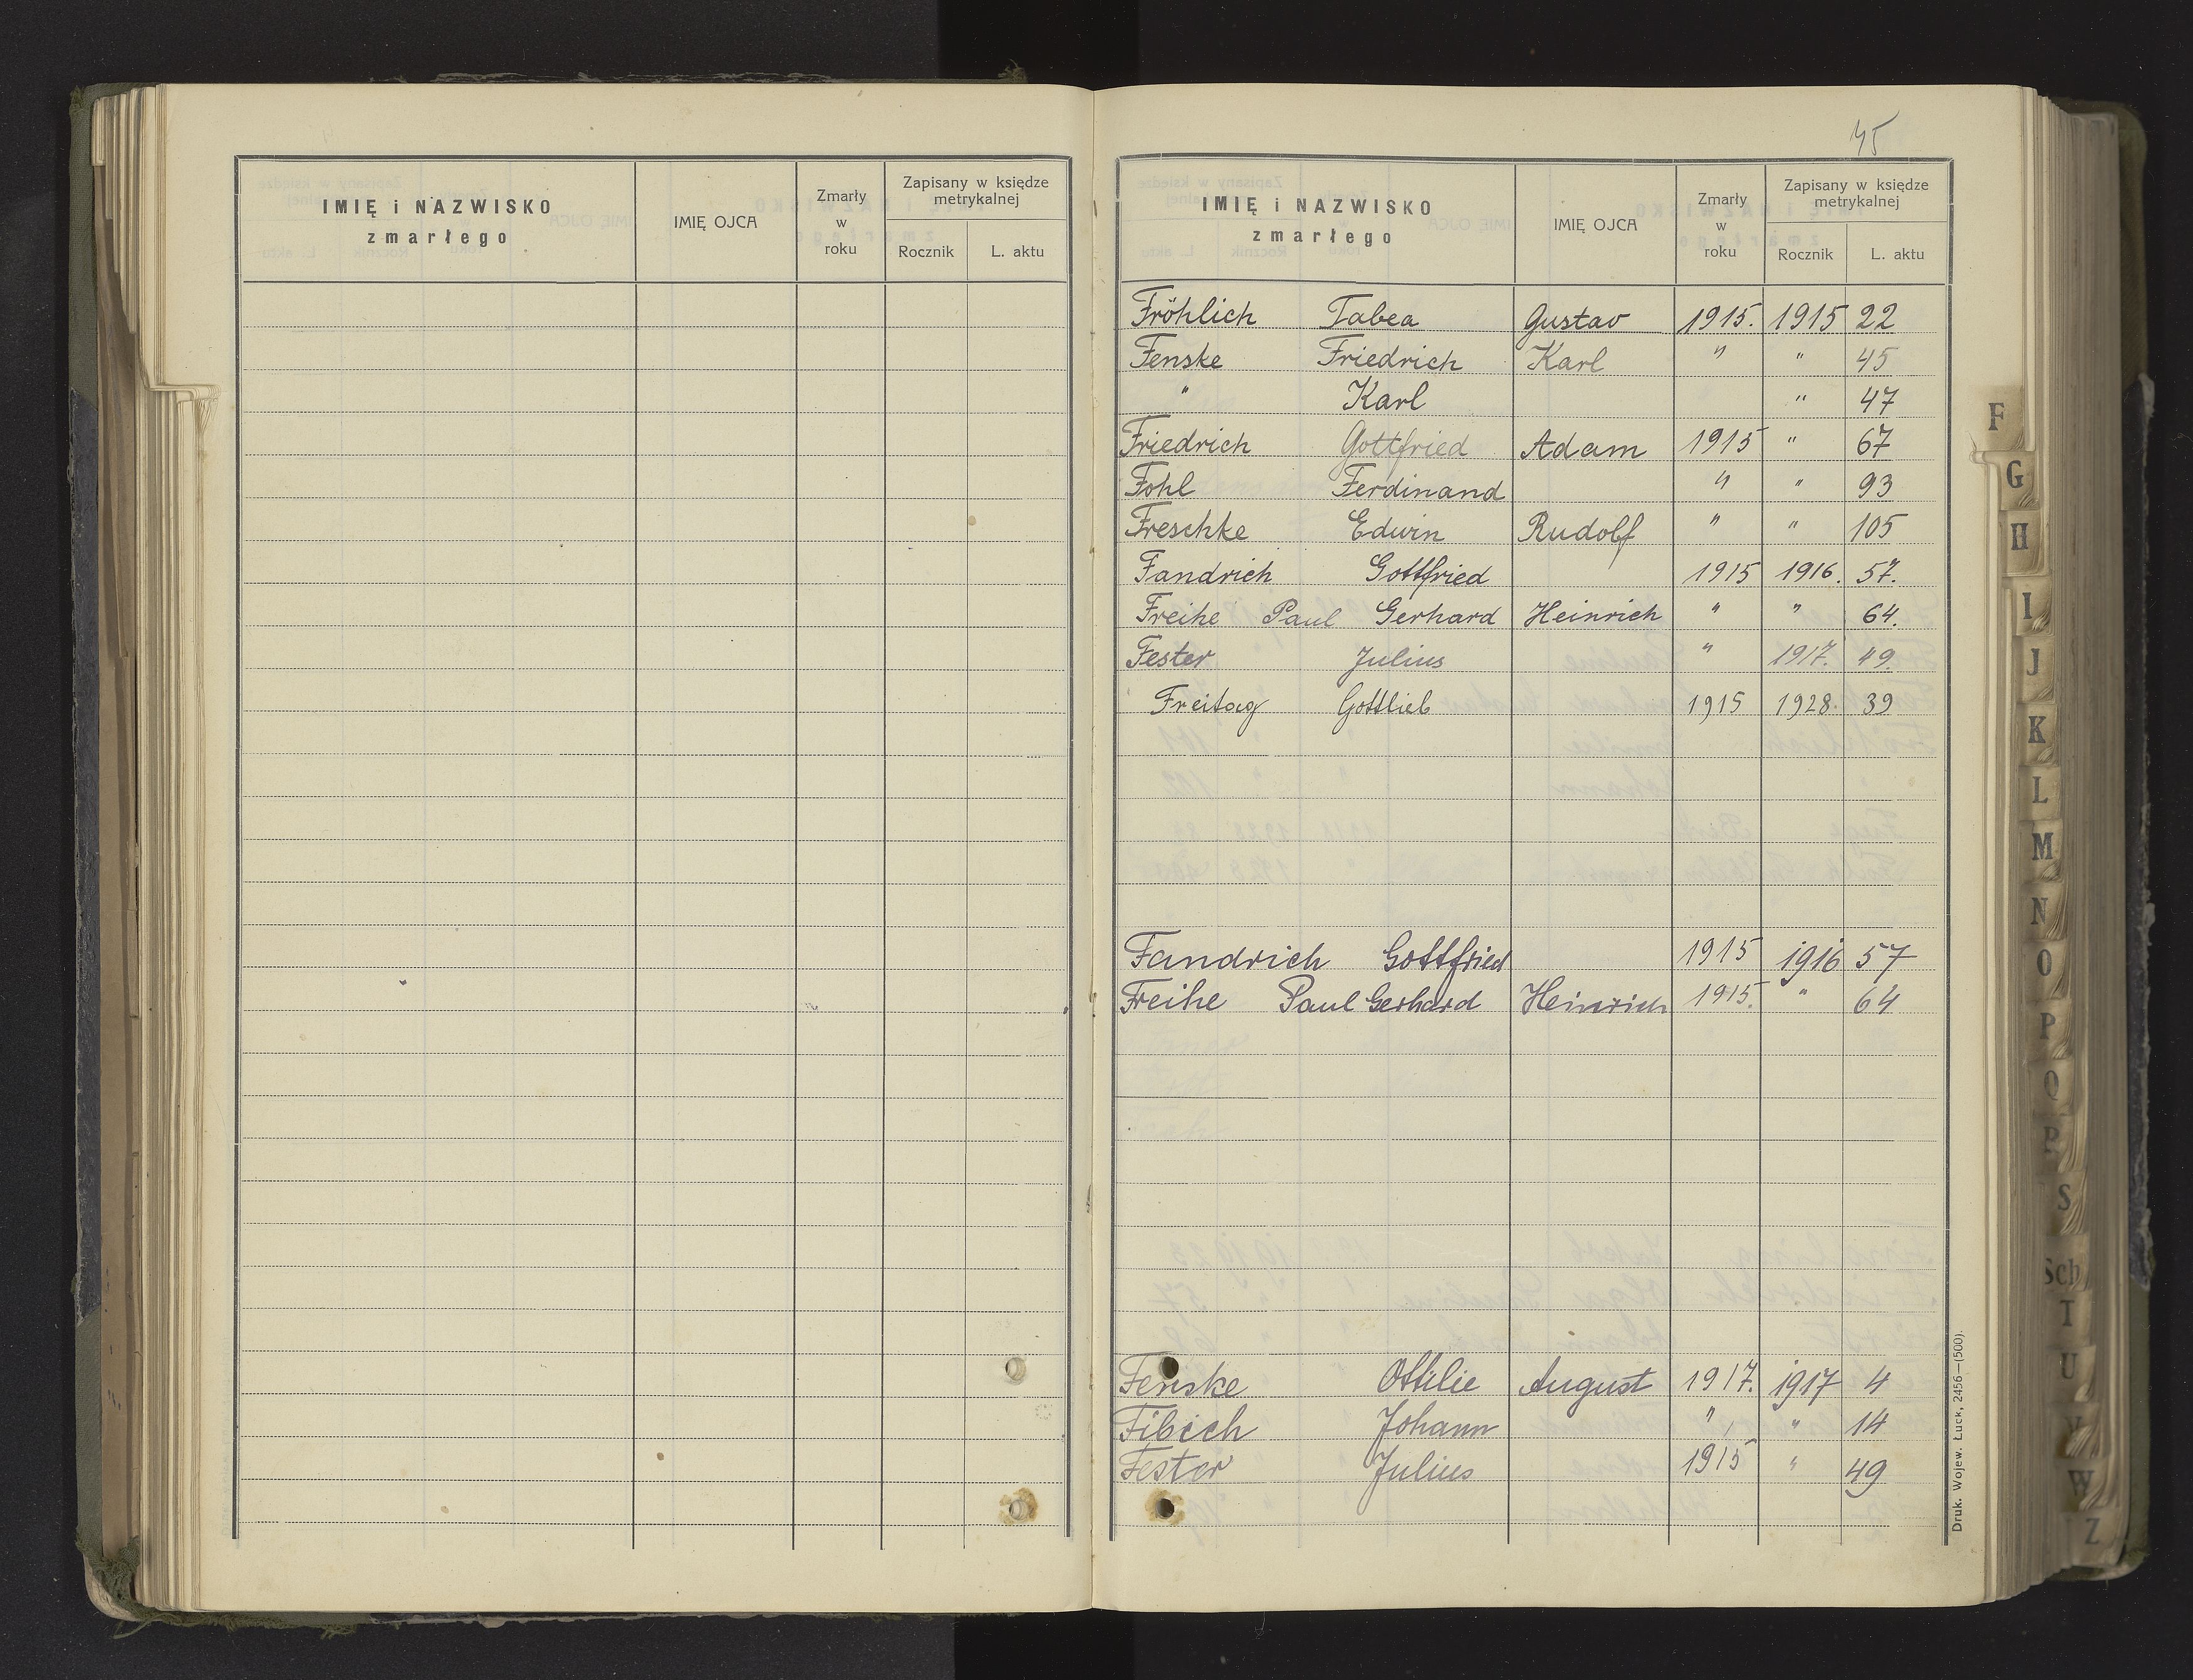 45
IMIĘ i NAZWISKO zmarłego IMIĘ OJCA Zmarły w roku Zapisany w księdze metrykalnej Rocznik L. aktu
IMIĘ i NAZWISKO zmarłego IMIĘ OJCA Zmarły w roku Zapisany w księdze metrykalnej Rocznik L. aktu
Fröhlich Tabea Gustav 1915. 1915 22
Fenske Friedrich Karl " " 45
" Karl " 47
Friedrich Gottfried Adam 1915 " 67
Fohl Ferdinand " " 93
Freschke Edwin Rudolf " " 105
Fandrich Gottfried 1915 1916. 57.
Freihe Paul Gerhard Heinrich " " 64.
Fester Julius " 1917. 49.
Freitag Gottlieb 1915 1928. 39
Fandrich Gottfried 1915 1916 57
Freihe Paul Gerhard Heinrich 1915. " 64
Fenske Ottilie August 1917. 1917 4
Fibich Johann " " 14
Fester Julius 1915 " 49
Druk. Wojew. Łuck, 2456—(500).
F
G
H
I
J
K
L
M
N
O
P
Q
R
S
Sch
T
U
V
W
Z